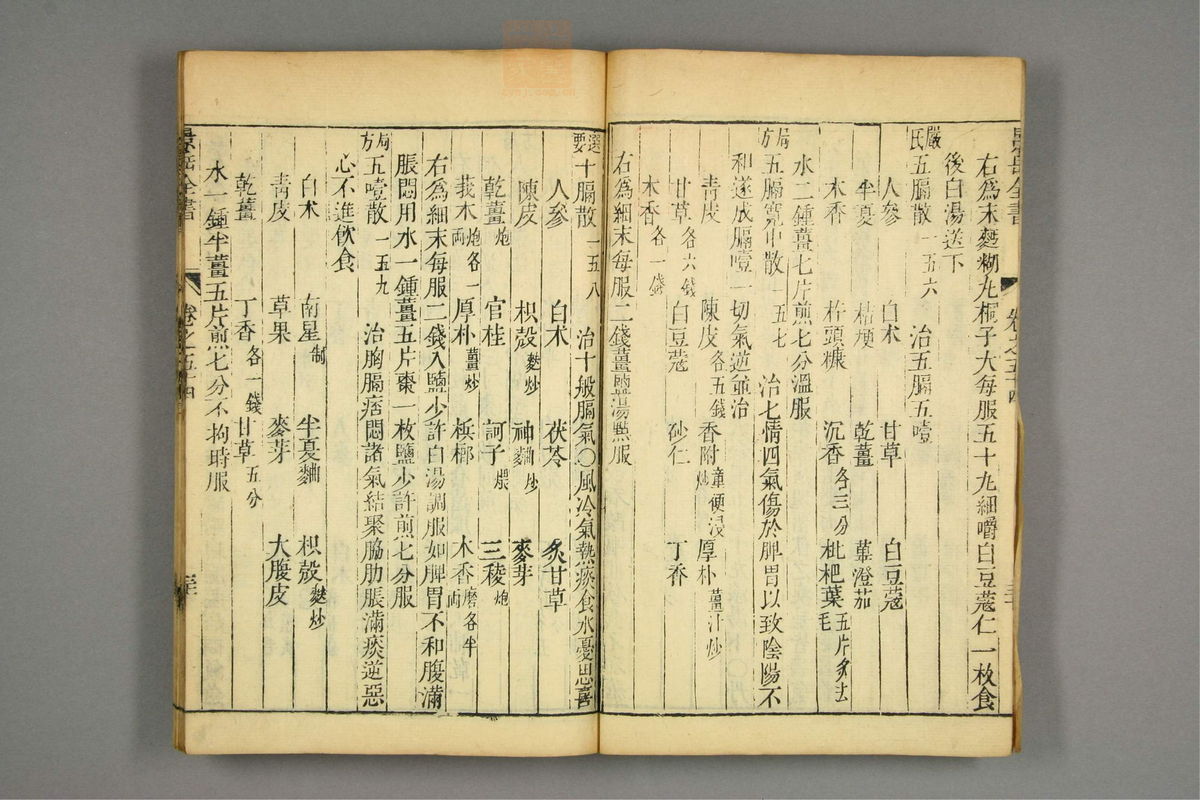 景岳全書 卷之五十四
右為末麪糊丸桐子大每服五十丸細嚼白豆蔻仁一枚食
後白湯送下
嚴氏五膈散一五六 治五膈五噎
人參 白术 甘草 白豆蔻
半夏 桔梗 乾薑 蓽澄茄
木香 杵頭糠 沉香各三分 枇杷葉五片炙去毛
水二鍾薑七片煎七分溫服
局方五膈寬中散一五七 治七情四氣傷於脾胃以致陰陽不
和遂成膈噎一切氣逆並治
青皮 陳皮各五錢 香附童便浸炒 厚朴薑汁炒
甘草各六錢 白豆蔻 砂仁 丁香
木香各一錢
右為細末每服二錢薑鹽湯點服
選要十膈散一五八 治十般膈氣〇風冷氣熱痰食水憂思喜
人參 白术 茯苓 炙甘草
陳皮 枳殼麩炒 神麯炒 麥芽
乾薑炮 官桂 訶子煨 三稜炮
莪术炮各一兩 厚朴薑炒 梹榔 木香磨各半兩
右為細末每服二錢入鹽少許白湯調服如脾胃不和腹滿
脹悶用水一鍾薑五片棗一枚鹽少許煎七分服
局方五噎散一五九 治胸膈痞悶諸氣結聚脇肋脹滿痰逆惡
心不進飲食
白术 南星制 半夏麯 枳殼麩炒
青皮 草果 麥芽 大腹皮
乾薑 丁香各一錢 甘草五分
水一鍾半薑五片煎七分不拘時服
景岳全書 卷之五十四